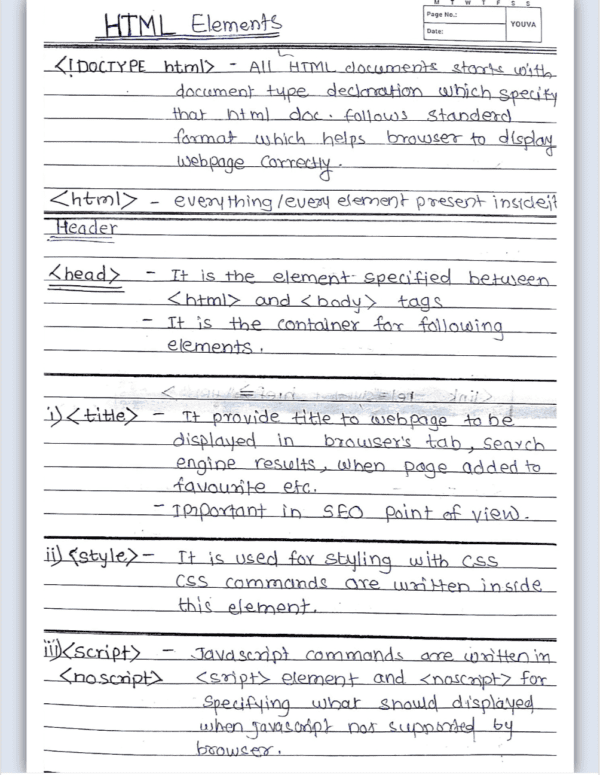 M T W T F S S
Page No.:
Date:
YOUVA
HTML Elements
<!DOCTYPE html> - All HTML documents starts with
document type declaration which specify
that html doc. follows standerd
format which helps browser to display
webpage correctly.
<html> - everything/every element present inside it
Header
<head> - It is the element specified between
<html> and <body> tags
- It is the container for following
elements.
i) <title> - It provide title to webpage to be
displayed in browser's tab, search
engine results, when page added to
favourite etc.
- Important in SEO point of view.
ii) <style> - It is used for styling with CSS
CSS commands are written inside
this element.
iii) <script> - Javascript commands are written in
<noscript> <sript> element and <noscript> for
specifying what should displayed
when javascript not supported by
browser.